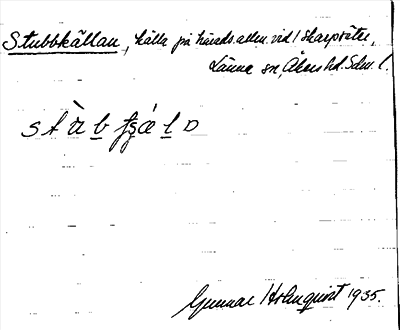 Stubbkällan, källa på härads.allm. vid Skarpsäter,
Länna sn, Åkers hd. Sdm. l.
Gunnar Holmquist 1935.